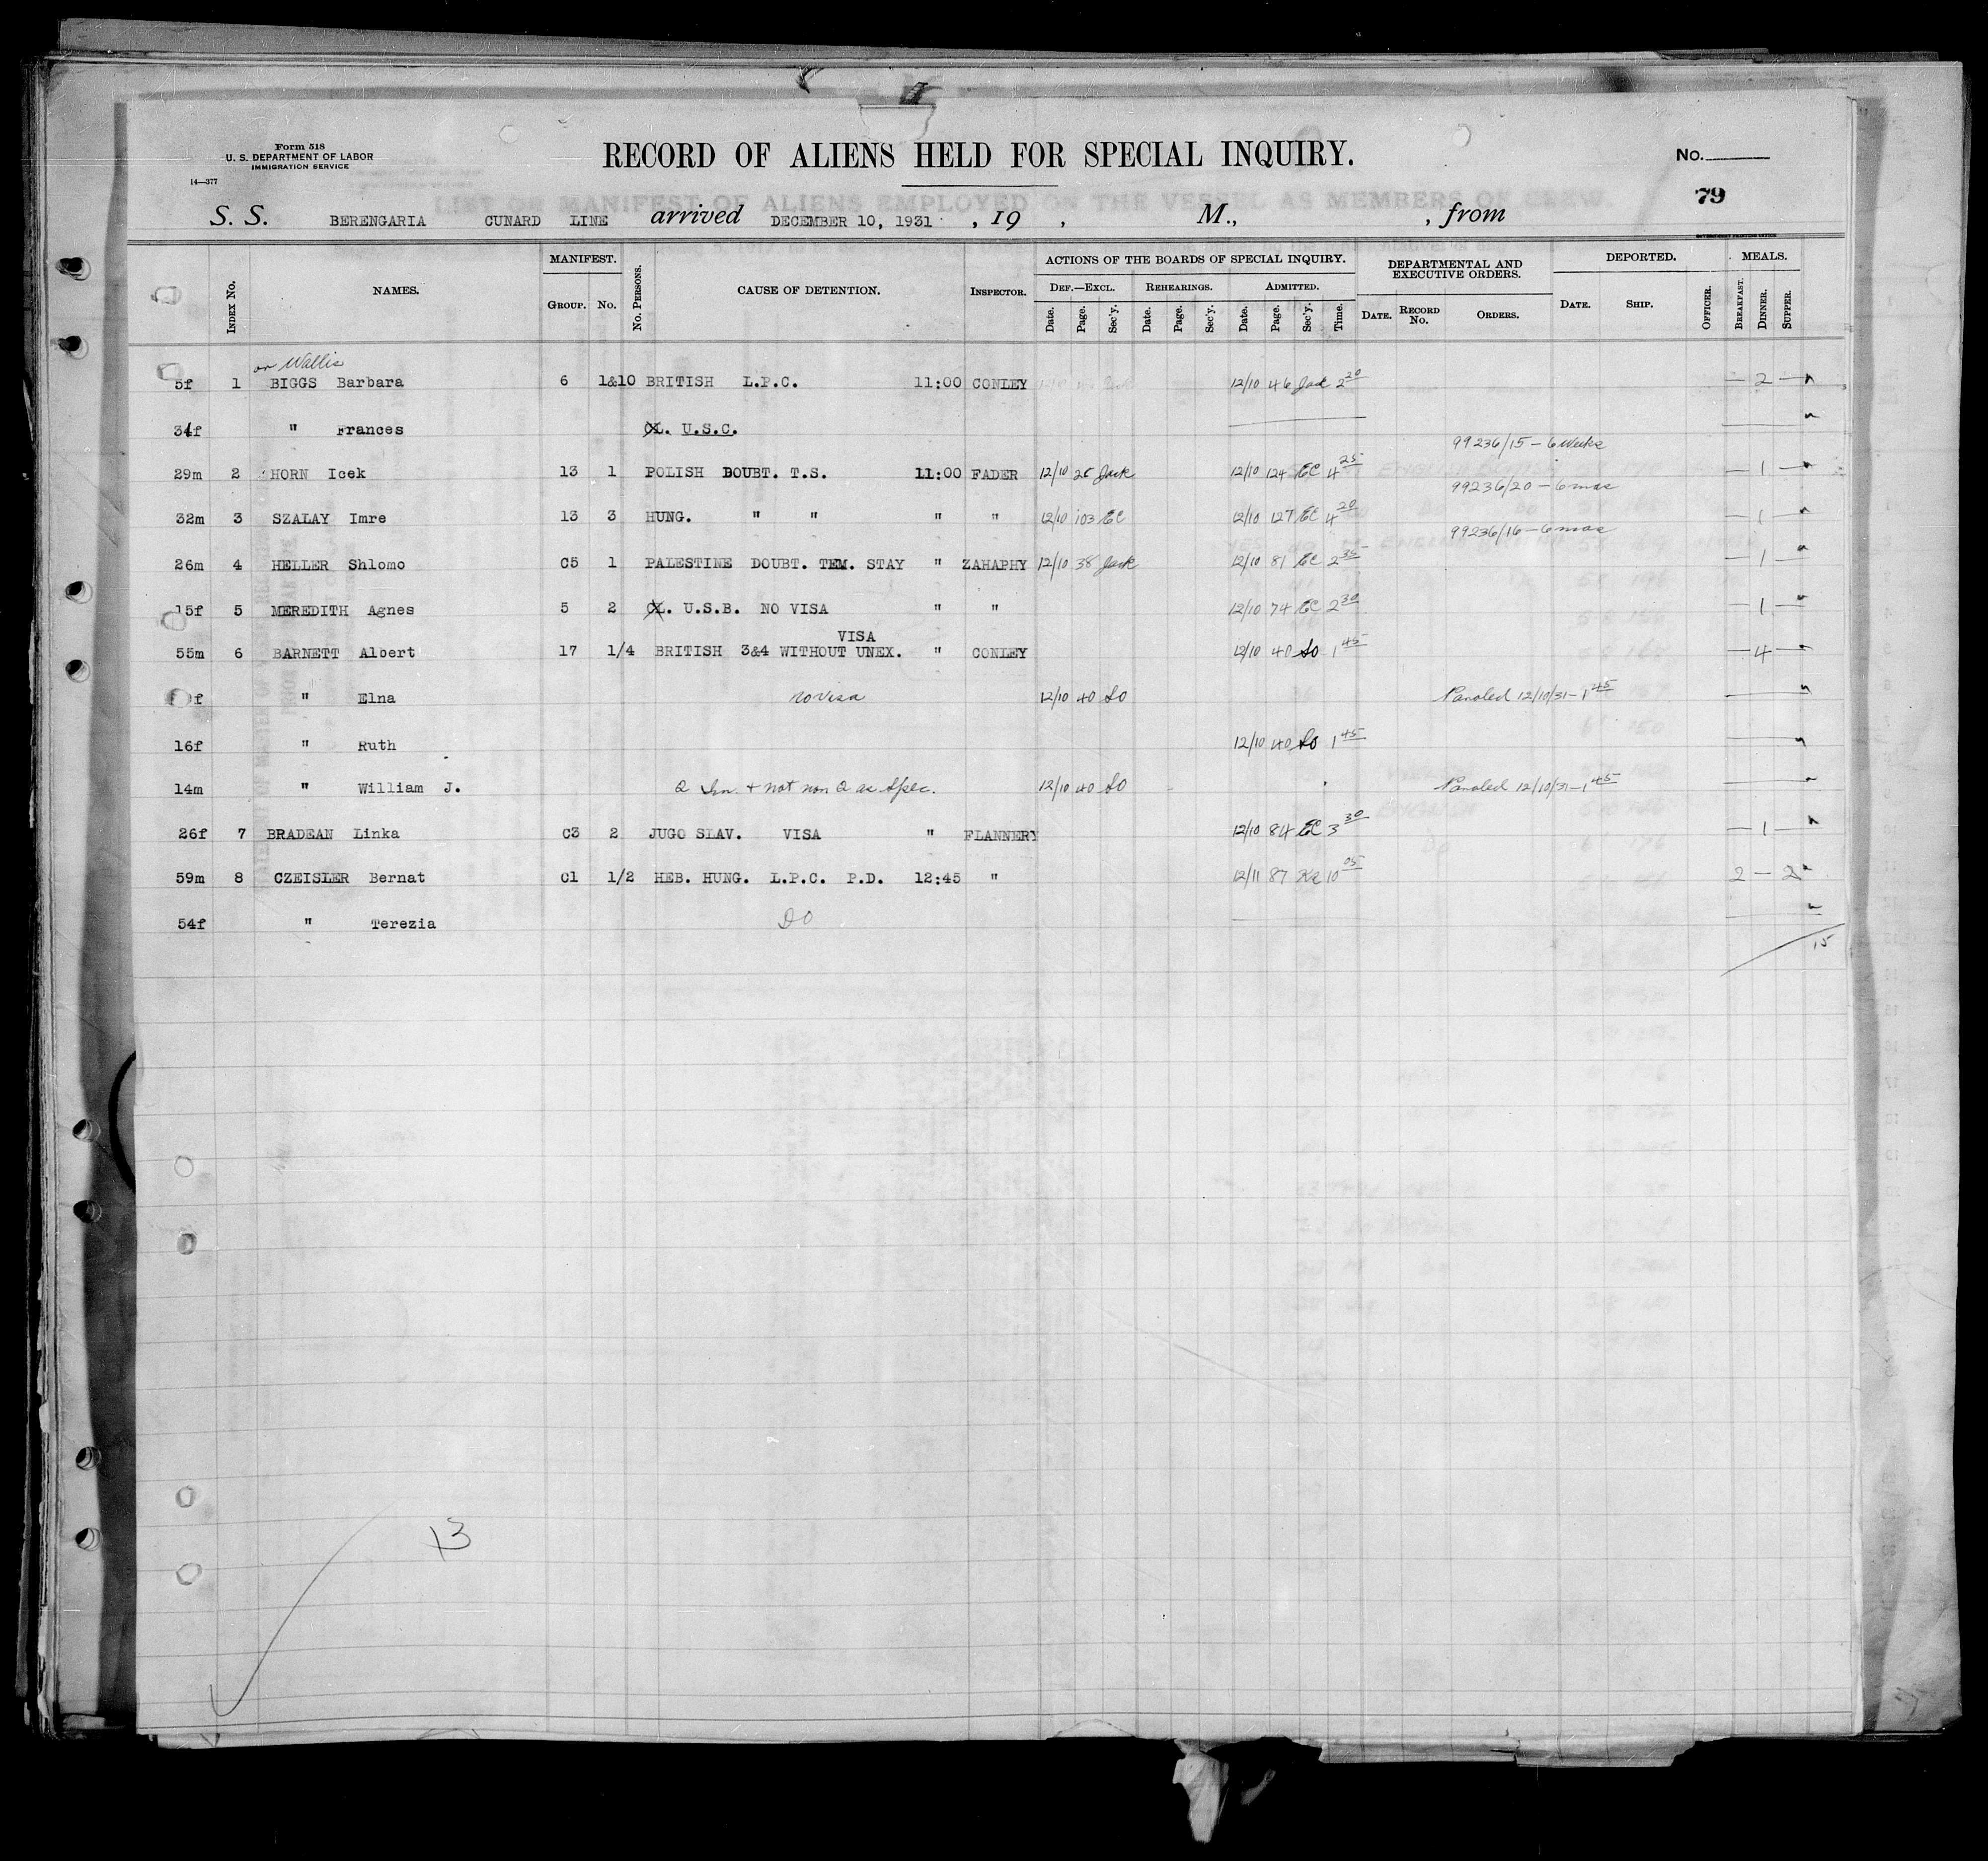 Form 518
U. S. DEPARTMENT OF LABOR
IMMIGRATION SERVICE
14—377
RECORD OF ALIENS HELD FOR SPECIAL INQUIRY.
No.
79
S. S. BERENGARIA CUNARD LINE arrived DECEMBER 10, 1931 , 19 , M., , from
GOVERNMENT PRINTING OFFICE
Index No. NAMES. MANIFEST. Group. No. No. Persons. CAUSE OF DETENTION. Inspector. ACTIONS OF THE BOARDS OF SPECIAL INQUIRY. Def.—Excl. Date. Page. Sec'y. Rehearings. Date. Page. Sec'y. Admitted. Date. Page. Sec'y. Time. DEPARTMENTAL AND EXECUTIVE ORDERS. Date. Record No. Orders. DEPORTED. Date. Ship. Officer. MEALS. Breakfast. Dinner. Supper.
or Wallis
5f 1 BIGGS Barbara 6 1&10 BRITISH L.P.C. 11:00 CONLEY 12/10 46 Jack 2 20 — 2 —
34f " Frances CL. U.S.C.
99236/15 – 6 Weeks
29m 2 HORN Icek 13 1 POLISH DOUBT. T.S. 11:00 FADER 12/10 25 Jack 12/10 124 EC 4 25 — 1 —
99236/20 – 6 mos
32m 3 SZALAY Imre 13 3 HUNG. " " " " 12/10 103 EC 12/10 127 EC 4 20 — 1 —
99236/16 – 6 mos
26m 4 HELLER Shlomo C5 1 PALESTINE DOUBT. TEM. STAY " ZAHAPHY 12/10 38 Jack 12/10 81 EC 2 35 — 1 —
15f 5 MEREDITH Agnes 5 2 CL. U.S.B. NO VISA " " 12/10 74 EC 2 30 — 1 —
VISA
55m 6 BARNETT Albert 17 1/4 BRITISH 3&4 WITHOUT UNEX. " CONLEY 12/10 40 SO 1 45 — 4 —
f " Elna no visa 12/10 40 SO Paroled 12/10/31 – 1 45
16f " Ruth 12/10 40 SO 1 45
14m " William J. Q Im. + not non Q as Spec. 12/10 40 SO Paroled 12/10/31 – 1 45
26f 7 BRADEAN Linka C3 2 JUGO SLAV. VISA " FLANNERY 12/10 84 EC 3 30 — 1 —
59m 8 CZEISLER Bernat C1 1/2 HEB. HUNG. L.P.C. P.D. 12:45 " 12/11 87 10 05 2 — 2
54f " Terezia DO
15
13